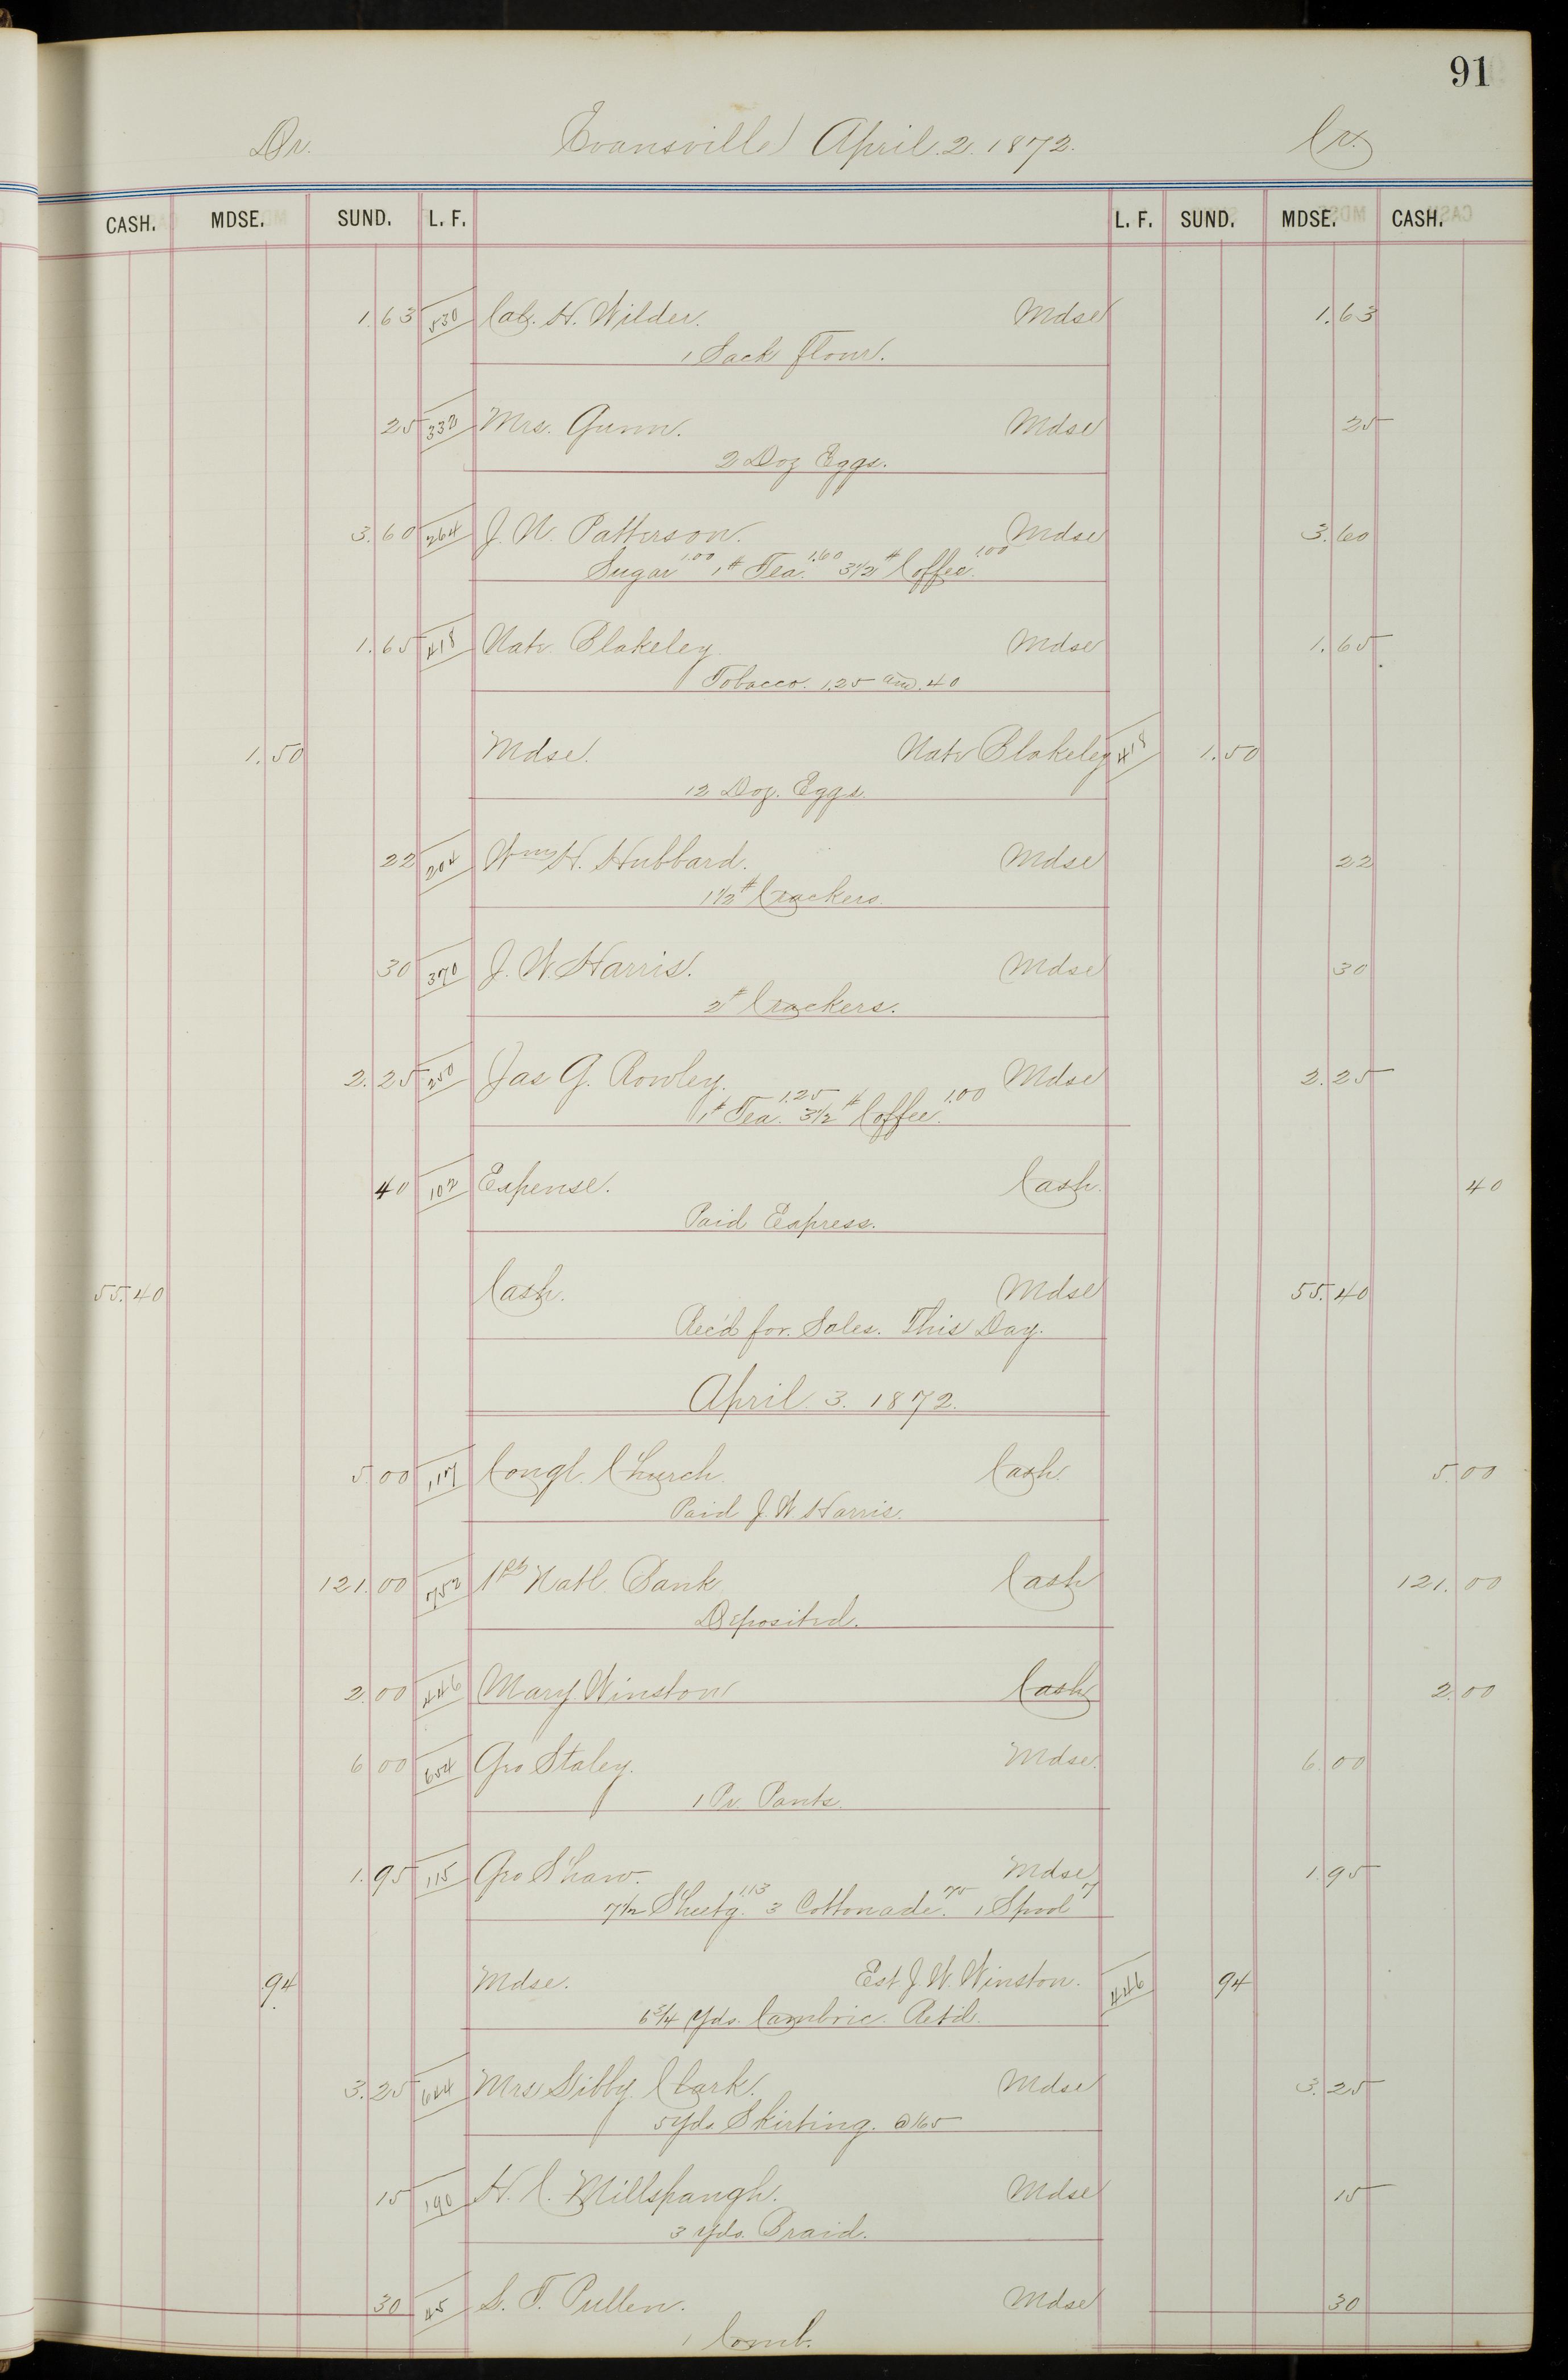 91
Dr. Evansville April. 2. 1872. Cr.
CASH. MDSE. SUND. L. F. L. F. SUND. MDSE. CASH.
1.63 530 Cal. H. Wilder. Mdse 1.63
1 Sack Flour.
25 332 Mrs. Gunn. Mdse 25
2 Doz Eggs.
3.60 264 J. W. Patterson. Mdse 3.60
Sugar 1.00 1# Tea. 1.60 3 1/2# Coffee. 1.00
1.65 418 Nate Blakeley. Mdse 1.65
Tobacco. 1.25 and .40
1.50 Mdse. Nate Blakeley 418 1.50
12 Doz. Eggs.
22 204 Wm H. Hubbard. Mdse 22
1 1/2# Crackers.
30 370 J. W. Harris. Mdse 30
2# Crackers.
2.25 250 Jas G. Rowley. Mdse 2.25
1# Tea. 1.25 3 1/2# Coffee. 1.00
40 102 Expense. Cash. 40
Paid Express.
55.40 Cash. Mdse 55.40
Rec'd for. Sales. This Day.
April. 3. 1872.
5.00 117 Congl. Church. Cash. 5.00
Paid J. W. Harris.
121.00 752 1st Natl. Bank Cash 121.00
Deposited.
2.00 446 Mary Winston Cash 2.00
6.00 654 Geo Staley. Mdse. 6.00
1 Pr. Pants.
1.95 115 Geo Shaw. Mdse 1.95
7 1/2 Sheetg. 1.13 3 Cottonade. 75 1 Spool 7
.94 Mdse. Est J. W. Winston. 446 94
6 3/4 Yds. Cambric. Ret'd.
3.25 644 Mrs Libby Clark. Mdse 3.25
5 Yds Skirting. @ /65
15 190 H. C. Millspaugh. Mdse 15
3 Yds. Braid.
30 45 L. T. Pullen. Mdse 30
1 Comb.